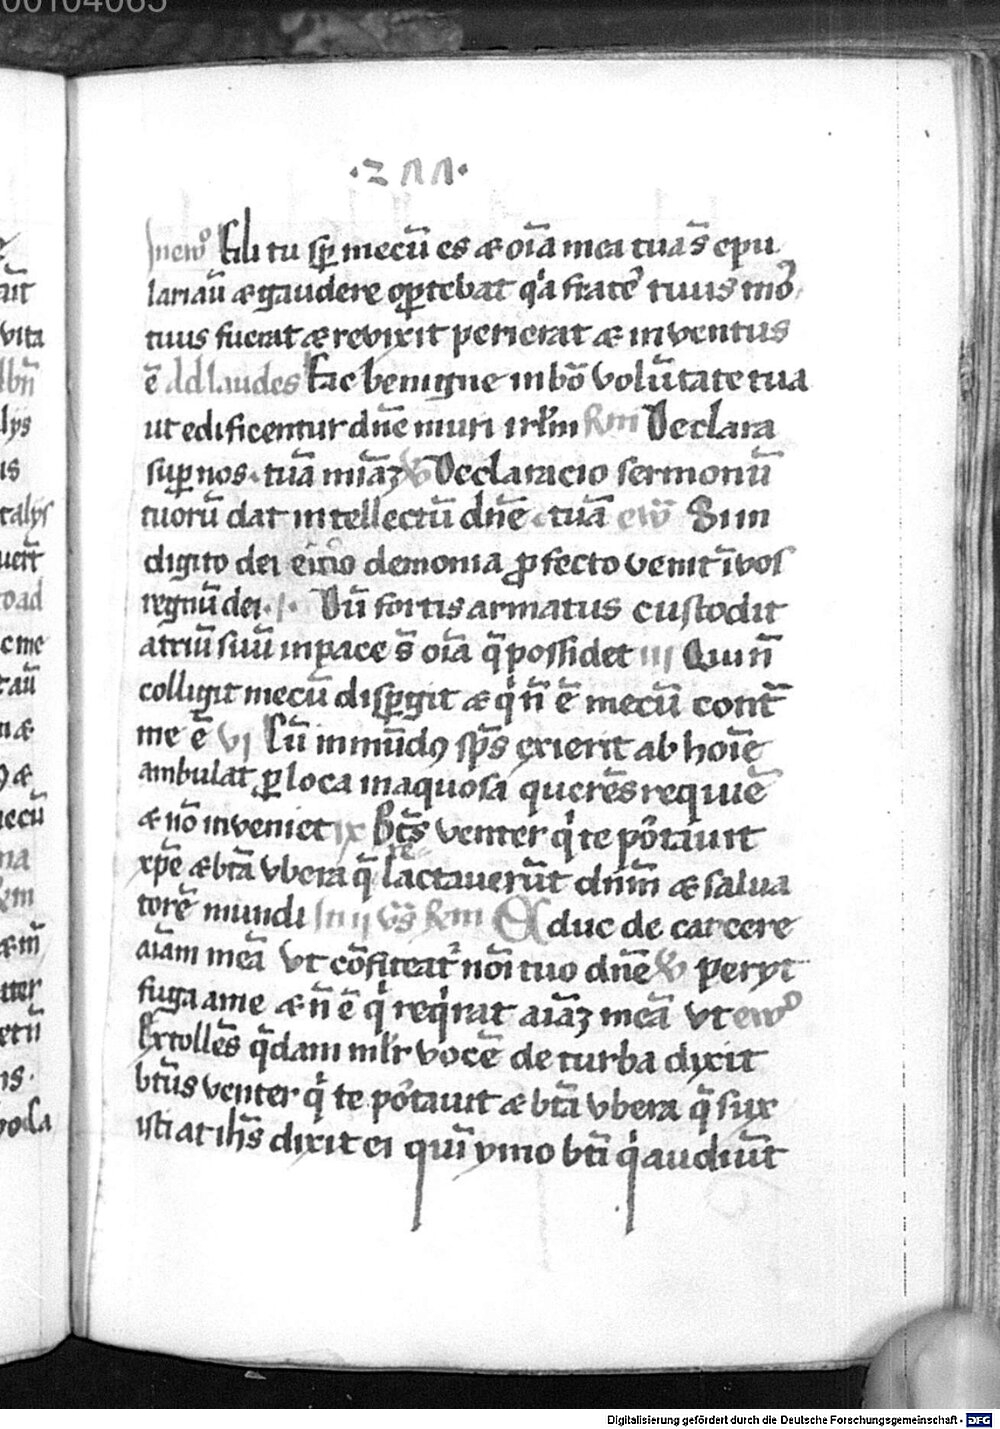 00104065
·2ΛΛ·
In ew̄o Fili tu sꝑ mecū es ⁊ oīa mea tua s̄ epu
lariau ⁊ gaudere oꝑtebat q̄a frater tuus mō
tuus fuerat ⁊ revixit perierat ⁊ inventus
ē Ad laudes Fac benigne in bō volūtate tua
ut edificentur dn̄e muri irl̄m Rm Declara
suꝑ nos· tuā miāz V Declaracio sermonū
tuorū dat intellectū dn̄e · tuā ew̄ Si in
digito dei eicio demonia ꝓfecto venit ī vos
regnū dei · Dū fortis armatus custodit
atriū suū in pace s̄ oīa q̄ possidet iii Qui n̄
colligit mecū disꝑgit ⁊ qͥ n̄ ē mecū cont̄
me ē vi Cū inmūdꝰ sp̄s exierit ab hoīe
ambulat ꝑ loca inaquosa querēs requiē
⁊ nō inveniet ix Bt̄s venter qͥ te portauit
xp̄e ⁊ btā vbera q̄ lactaverūt dn̄m ⁊ salua
torē mundi In ij Vs̄ Rm Educ de carcere
aīam meā vt cōfiteatͬ nōi tuo dn̄e V Peryt
fuga a me ⁊ n̄ ē qͥ reqͥrat aīaz meā vt ewo
Extollēs q̄dam mlͬr vocē de turba dixit
btūs venter qͥ te portauit ⁊ btā vbera q̄ sux
isti at ih̄s dixit ei quī ymo bt̄i qͥ audiūt
Digitalisierung gefördert durch die Deutsche Forschungsgemeinschaft - DFG